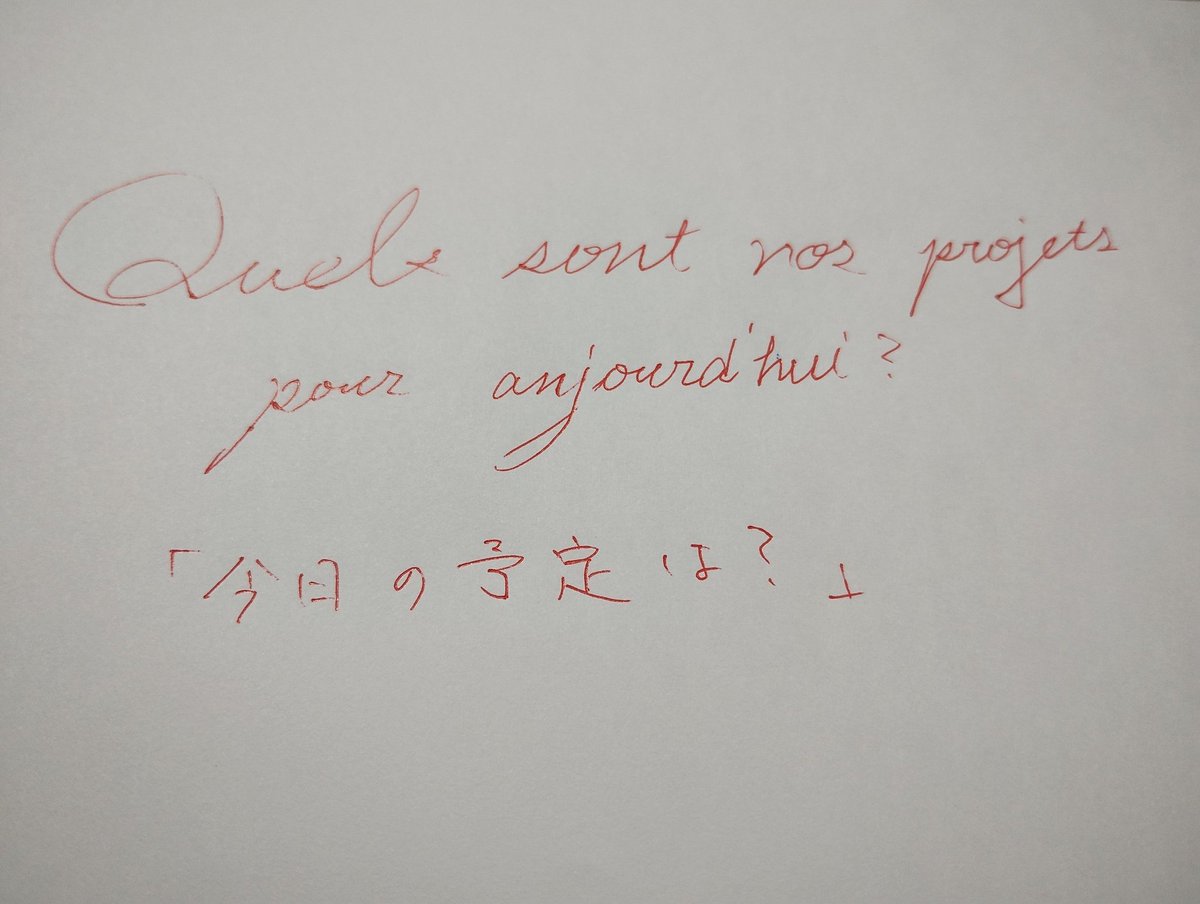 Quels sont nos projets
pour aujourd'hui?
「今日の予定は?」